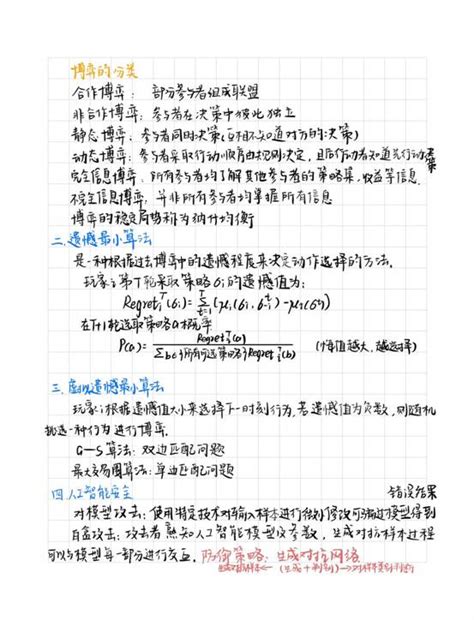 博弈的分类
合作博弈： 部分参与者组成联盟
非合作博弈：参与者在决策中彼此独立
静态博弈：参与者同时决策(互相不知道对方的决策)
动态博弈：参与者采取行动顺序由规则决定，且后行动者知道先行动决策
完全信息博弈：所有参与者均了解其他参与者的策略集，收益等信息
不完全信息博弈：并非所有参与者均掌握所有信息
博弈的稳定局势称为纳什均衡
二.遗憾最小算法
是一种根据过去博弈中的遗憾程度来决定动作选择的方法.
玩家i第T轮采取策略σi的遗憾值为：
Regret_i^T(σi)=Σ_{t=1}^T(μi(σi,σ_{-i}^t)-μi(σ^t))
在T+1轮选取策略a概率
P(a)=Regret_i^T(a)/Σ_{b∈{所有可选策略}}Regret_i^T(b) (憾值越大，越选择)
三.虚拟遗憾最小算法
玩家i根据遗憾值大小来选择下一时刻行为，若遗憾值为负数，则随机
挑选一种行为进行博弈.
G-S算法：双边匹配问题
最大交易圈算法：单边匹配问题
四.人工智能安全
对模型攻击：使用特定技术对输入样本进行微小修改可骗过模型得到错误结果
白盒攻击：攻击者熟知人工智能模型及参数，生成对抗样本过程
可以与模型每一部分进行交互. 防御策略：生成对抗网络
(生成+判别)